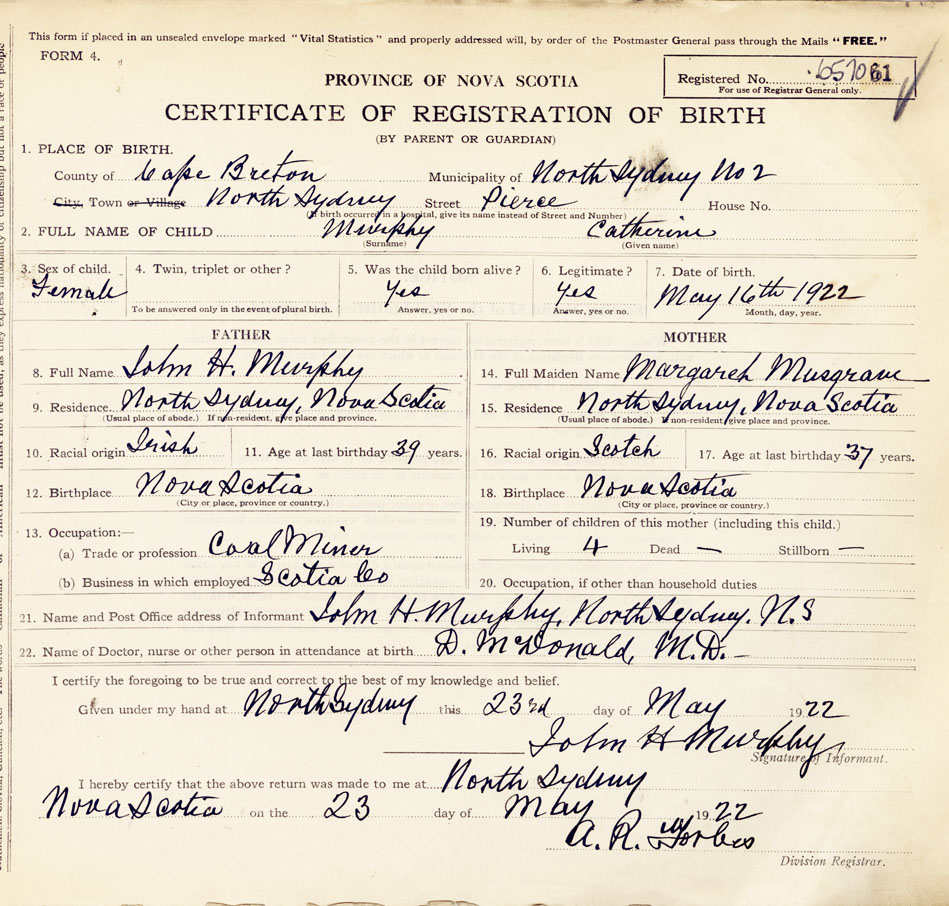 This form if placed in an unsealed envelope marked "Vital Statistics" and properly addressed will, by order of the Postmaster General pass through the Mails "FREE."
FORM 4.
Registered No. 61
For use of Registrar General only.
PROVINCE OF NOVA SCOTIA
CERTIFICATE OF REGISTRATION OF BIRTH
(BY PARENT OR GUARDIAN)
1. PLACE OF BIRTH.
County of Cape Breton Municipality of North Sydney No 2
City, Town or Village North Sydney Street Pierce House No.
(If birth occurred in a hospital, give its name instead of Street and Number)
2. FULL NAME OF CHILD Murphy Catherine
(Surname) (Given name)
3. Sex of child. 4. Twin, triplet or other? 5. Was the child born alive? 6. Legitimate? 7. Date of birth.
Female Yes Yes May 16th 1922
To be answered only in the event of plural birth. Answer, yes or no. Answer, yes or no. Month, day, year.
FATHER MOTHER
8. Full Name John H. Murphy 14. Full Maiden Name Margaret Musgrave
9. Residence North Sydney, Nova Scotia 15. Residence North Sydney, Nova Scotia
(Usual place of abode.) If non-resident, give place and province. (Usual place of abode.) If non-resident, give place and province.
10. Racial origin Irish 11. Age at last birthday 39 years. 16. Racial origin Scotch 17. Age at last birthday 37 years.
12. Birthplace Nova Scotia 18. Birthplace Nova Scotia
(City or place, province or country.) (City or place, province or country.)
13. Occupation:— 19. Number of children of this mother (including this child.)
(a) Trade or profession Coal Miner Living 4 Dead — Stillborn —
(b) Business in which employed Scotia Co 20. Occupation, if other than household duties
21. Name and Post Office address of Informant John H. Murphy, North Sydney. N.S
22. Name of Doctor, nurse or other person in attendance at birth D. McDonald, M.D. —
I certify the foregoing to be true and correct to the best of my knowledge and belief.
Given under my hand at North Sydney this 23rd day of May 1922
John H Murphy
Signature of Informant.
I hereby certify that the above return was made to me at North Sydney
Nova Scotia on the 23 day of May 1922
A. R. Forbes
Division Registrar.